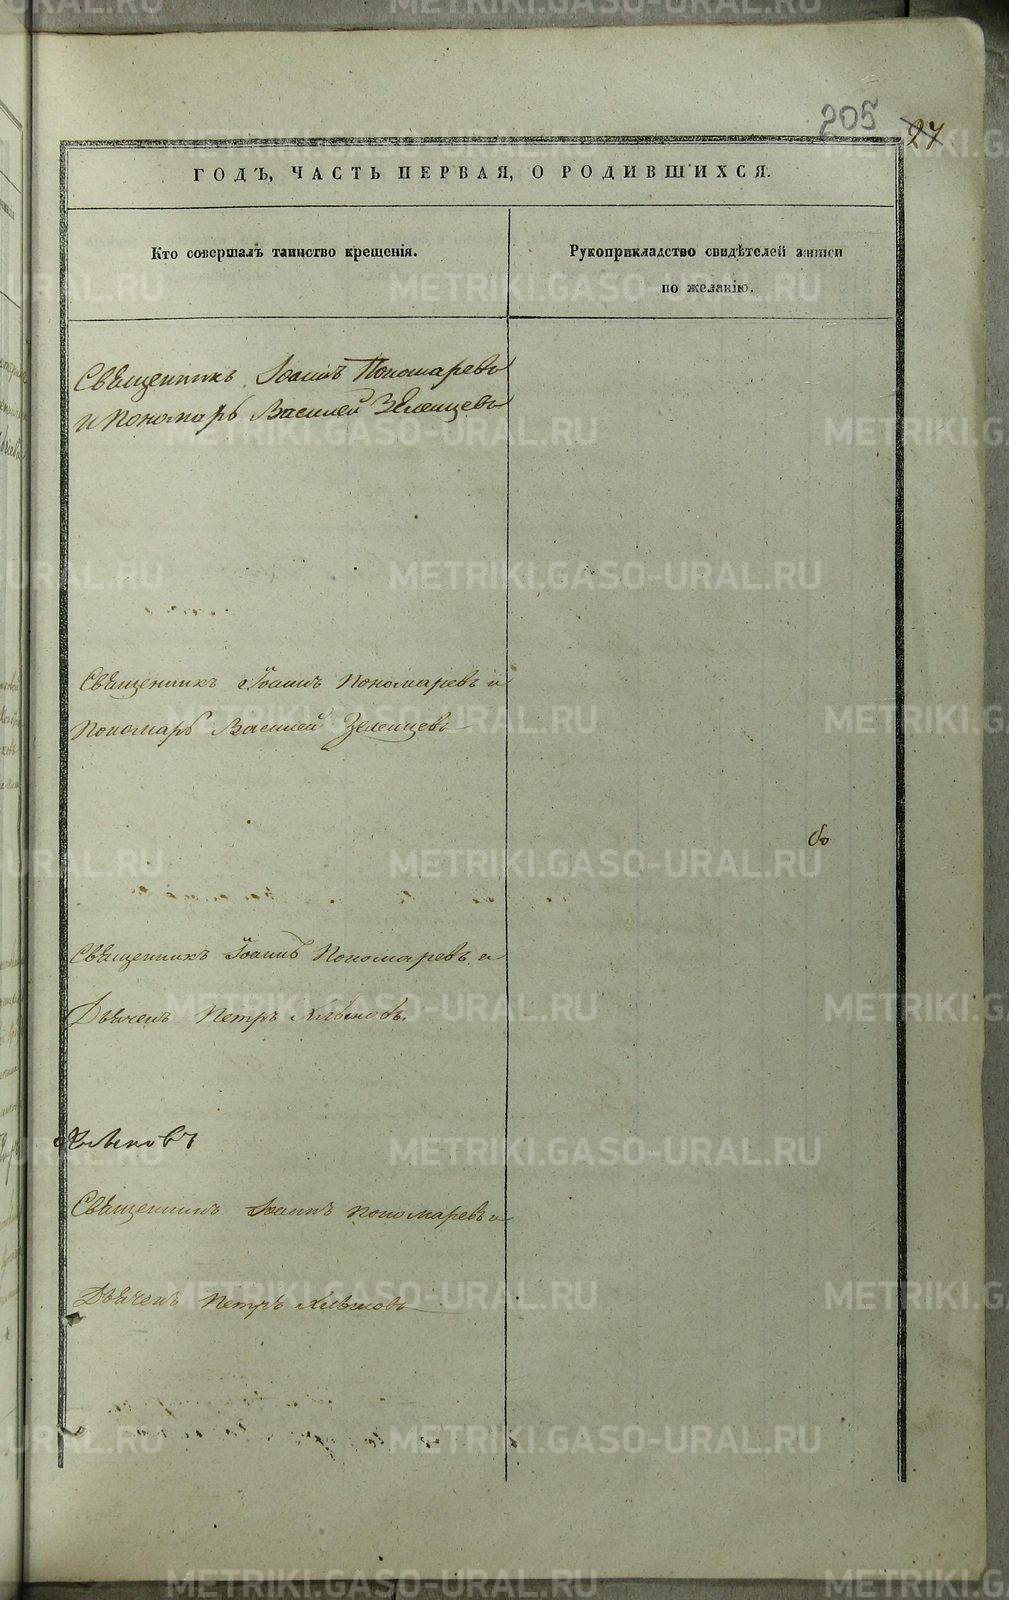 205 27
ГОДЪ, ЧАСТЬ ПЕРВАЯ, О РОДИВШИХСЯ.
Кто совершалъ таинство крещенія.
Рукоприкладство свидѣтелей записи
по желанію.
Священникъ Іоаннъ Пономаревъ
и Пономарь Василей Зеленцевъ
Священникъ Іоаннъ Пономаревъ и
Пономарь Василей Зеленцевъ
Священникъ Іоаннъ Пономаревъ и
Дьячекъ Петръ
Священникъ Іоаннъ Пономаревъ и
Дьячекъ Петръ
METRIKI.GASO-URAL.RU